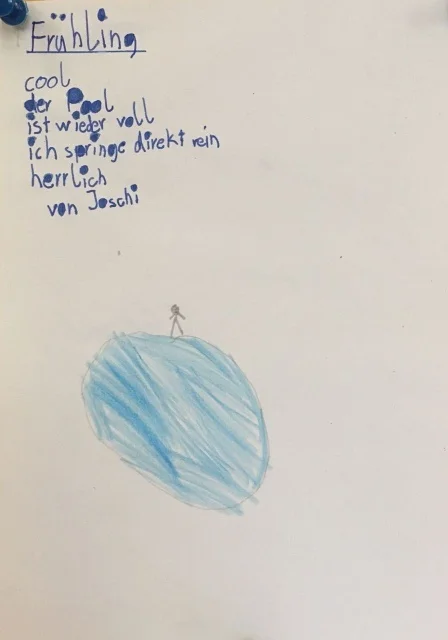 Frühling
cool
der Pool
ist wieder voll
ich springe direkt rein
herrlich
von Joschi